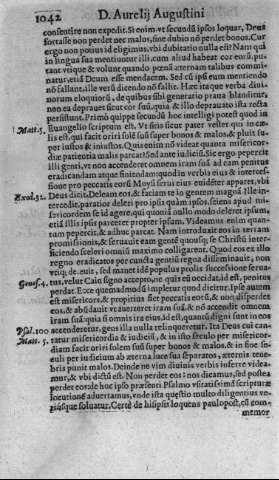 1042 D. Aurelij Augustini
consentire non expedit. Si enim vt secundũ ipsos loquar, Deus
fortasse non perdet nec malos, sine dubio nõ perdet bonos. Cur
ergo non potius id eligimus, vbi dubitatio nulla est? Nam quã
in lingua sua mentiuntur illi, cum aliud habeat cor eorũ, pu-
tant vtique & volunt quando penes æternam talibus commi-
natur, etiã Deum esse mendacem. Sed cũ ipsi eum mentiendo
nõ fallant, ille verũ dicendo nõ fallit. Hæc itaque verba diui-
norum eloquiorũ, de quibus sibi generatio praua blanditur,
non ea deprauet sicut cor suũ, quia & illo deprauato ista recta
persistunt. Primò quippe secundũ hoc intelligi potest quod in
Matt. 5. Euangelio scriptum est. Vt sitis sicut pater vester qui in cæ-
lis est: qui facit oriri solẽ suũ super bonos & malos, & pluit su-
per iustos & iniustos. Quis enim nõ videat quanta misericor-
diæ patientia malis parcat? Sed ante iudiciũ. Sic ergo pepercit
illi genti, vt non accenderet omnem iram suã ad eam penitus
eradicandam atque finiendam: quod in verbis eius & interces-
sione pro peccatis eorũ Moysi serui eius euidẽter apparet, vbi
Exod. 32. Deus dicit. Deleam eos, & faciam te in gentem magnã. Ille in-
tercedit, paratior deleri pro ipsis quàm ipsos, sciens apud mi-
sericordem se id agere, qui quoniã nullo modo deleret ipsum,
etiã illis ipsis parceret propter ipsum. Videamus enim quan-
tum pepercit, & adhuc parcat. Nam introduxit eos in terram
promissionis, & seruauit eam gentẽ quousq̃
regno eradicatio per cuncta gentiũ regna disseminauit, non
Genes. 4. tus, velut Cain signo accepto, ne quis eũ occidat, id est, penitus
perdat. Ecce quemadmodũ impletur quod dicitur. Ipse autem
est misericors, & propitius fiet peccatis eorũ, & non disperdet
eos, & abũdauit vt auerteret iram suã, & nõ accendit omnem
iram suã. quia si omnis ira eius, id est, quantũ digni sunt in eos
Psal. 100 accenderetur, gens illa nulla relinqueretur. Ita Deus cui can-
Matt. 5. tatur misericordia & iudiciũ, & in isto sæculo per misericor-
diam facit oriri solem suũ super bonos & malos, & in fine sæ-
culi per iudicium ab æterna luce sua separatos, æternis tene-
bris punit malos. Deinde ne vim diuinis verbis inferre videa-
mur, & vbi dictũ est. Non perdet eos: nos dicamus, sed postea
perdet eos: de hoc ipso præsenti Psalmo vsitatissimã scripturæ
locutionẽ aduertamus, vnde ista quæstio multo diligentius ve-
riúsque soluatur. Certè de his ipsis loquens paulopost, cũ com-
memor